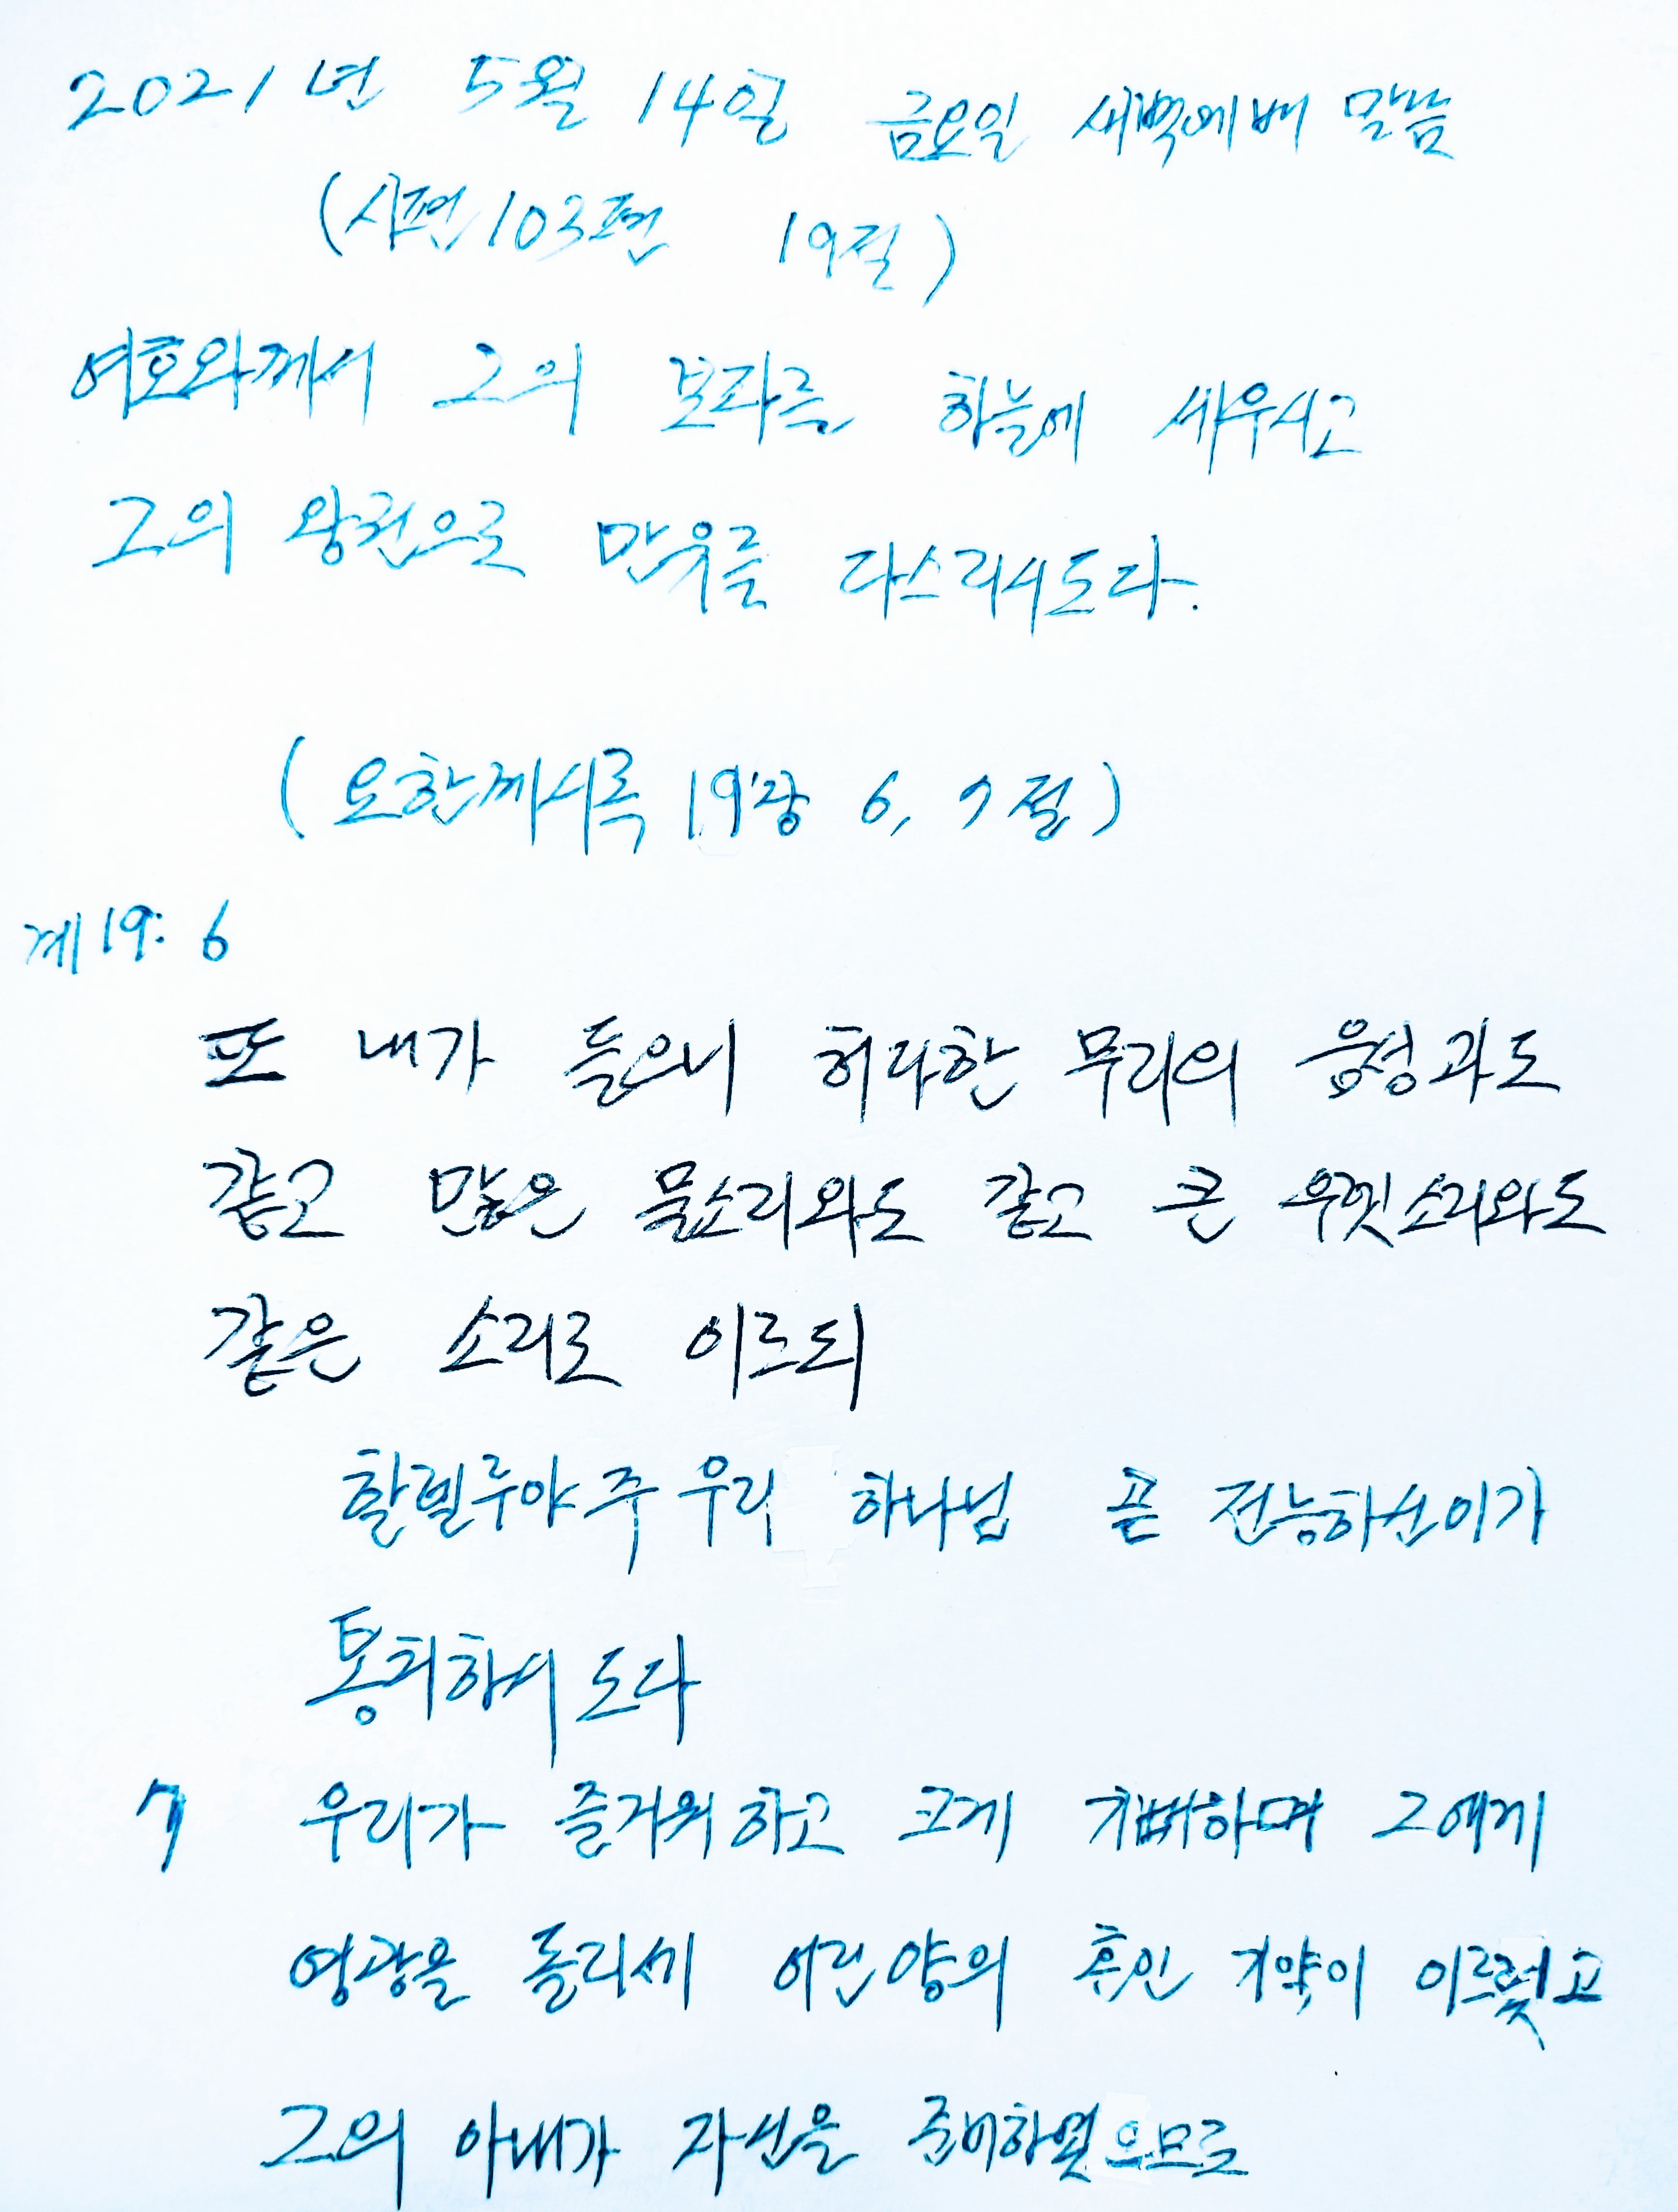 2021년 5월 14일 금요일 새벽예배 말씀
(시편 103편 19절)
여호와께서 그의 보좌를 하늘에 세우시고
그의 왕권으로 만유를 다스리시도다.
(요한계시록 19장 6, 7절)
계 19: 6
또 내가 들으니 허다한 무리의 음성과도
같고 많은 물소리와도 같고 큰 우렛소리와도
같은 소리로 이르되
할렐루야 주 우리 하나님 곧 전능하신이가
통치하시도다
7 우리가 즐거워하고 크게 기뻐하며 그에게
영광을 돌리세 어린 양의 혼인 기약이 이르렀고
그의 아내가 자신을 준비하였으므로